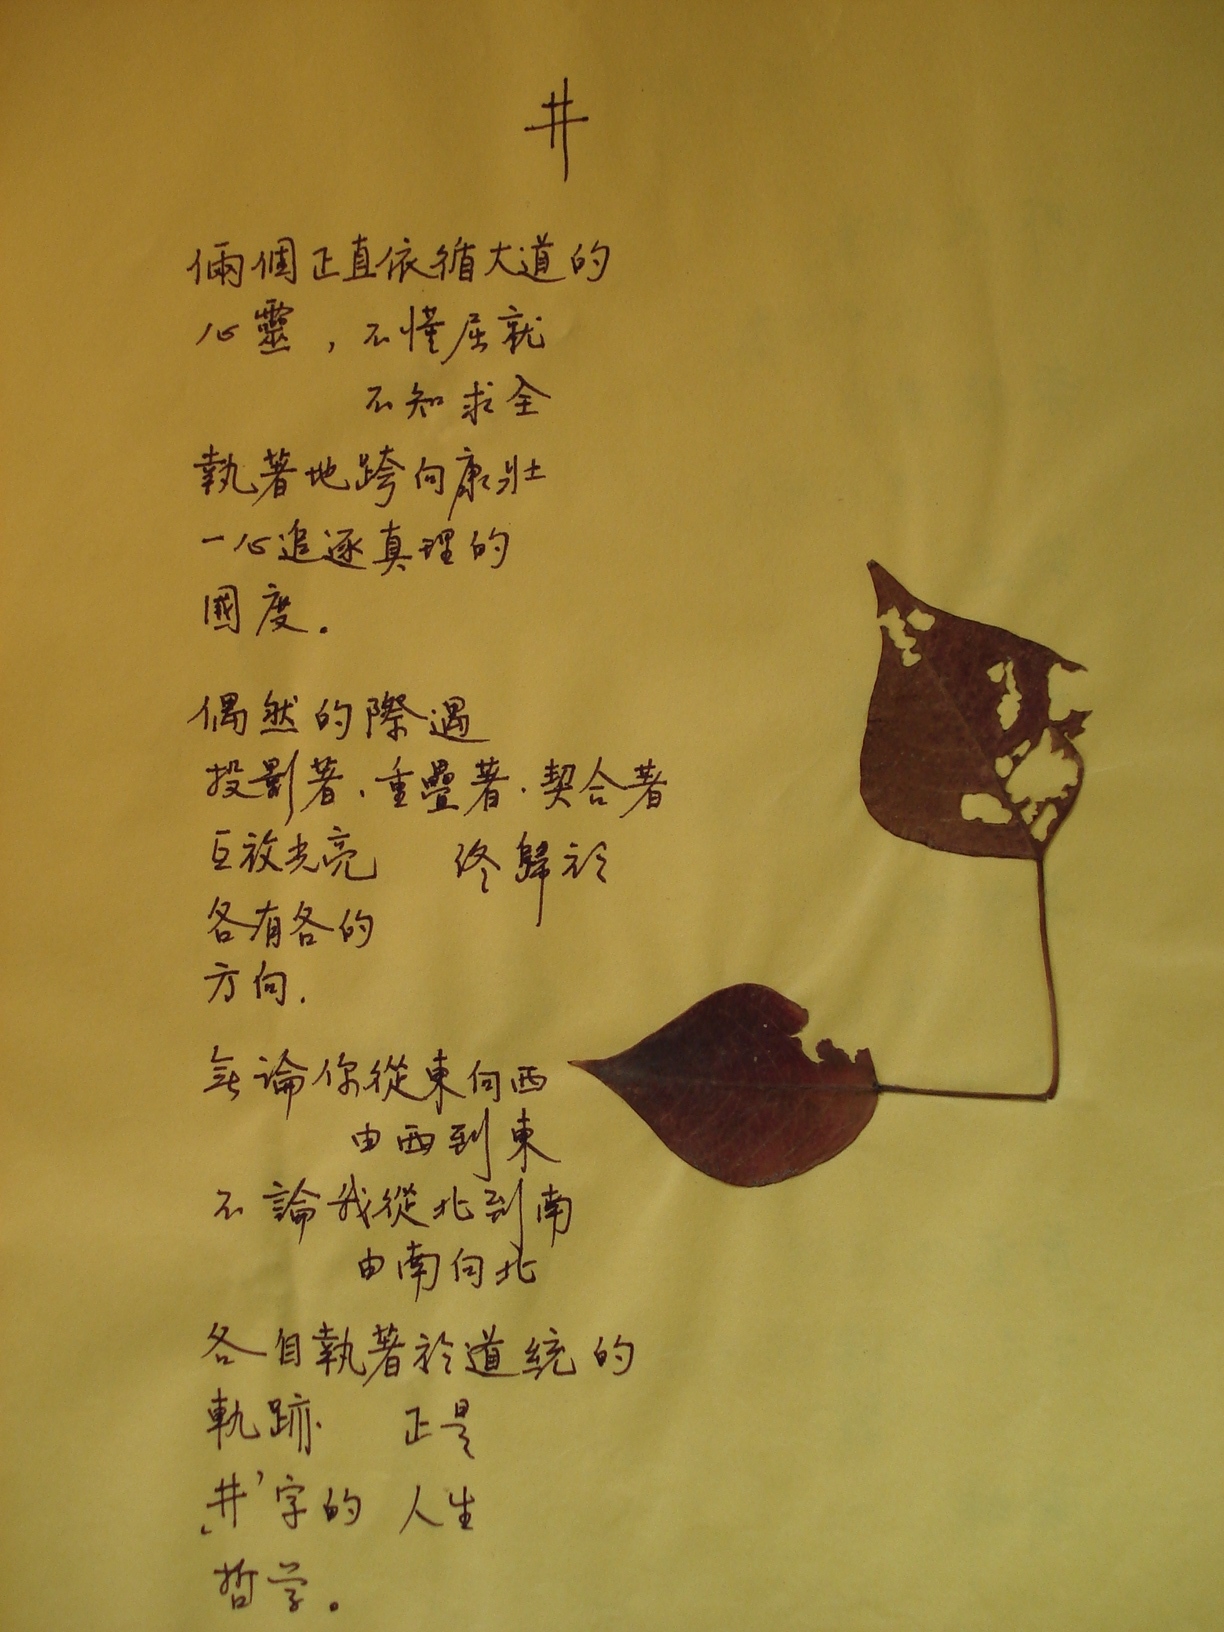 井
倆個正直依循大道的
心靈，不懂屈就
不知求全
執著地跨向康壯
一心追逐真理的
國度。
偶然的際遇
投影著、重疊著、契合著
互放光亮　終歸於
各有各的
方向.
無論你從東向西
由西到東
不論我從北到南
由南向北
各自執著於道統的
軌跡　正是
“井”字的　人生
哲学。